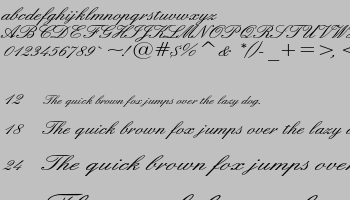 abcdefghijklmnopqrstuvwxyz
ABCDEFGHIJKLMNOPQRSTUVW
0123456789`~!@#$%^& *()-_+=>,<
12 The quick brown fox jumps over the lazy dog.
18 The quick brown fox jumps over the lazy
24 The quick brown fox jumps over